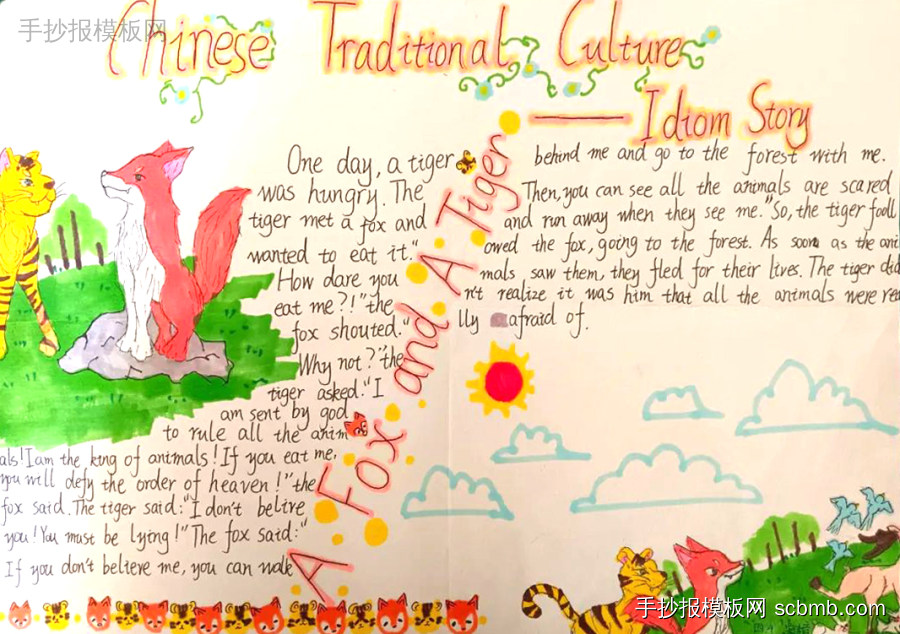 手抄报模板网
Chinese Traditional Culture
Idiom Story
A Fox and A Tiger
One day, a tiger
was hungry. The
tiger met a fox and
wanted to eat it."
How dare you
eat me?!" the
fox shouted."
Why not?" the
tiger asked. "I
am sent by god
to rule all the anim
als! I am the king of animals! If you eat me,
you will defy the order of heaven!" the
fox said. The tiger said: "I don't belive
you! You must be lying!" The fox said: "
If you don't believe me, you can walk
behind me and go to the forest with me.
Then, you can see all the animals are scared
and run away when they see me." So, the tiger foll
owed the fox, going to the forest. As soon as the ani
mals saw them, they fled for their lives. The tiger did
n't realize it was him that all the animals were rea
lly afraid of.
手抄报模板网 scbmb.com